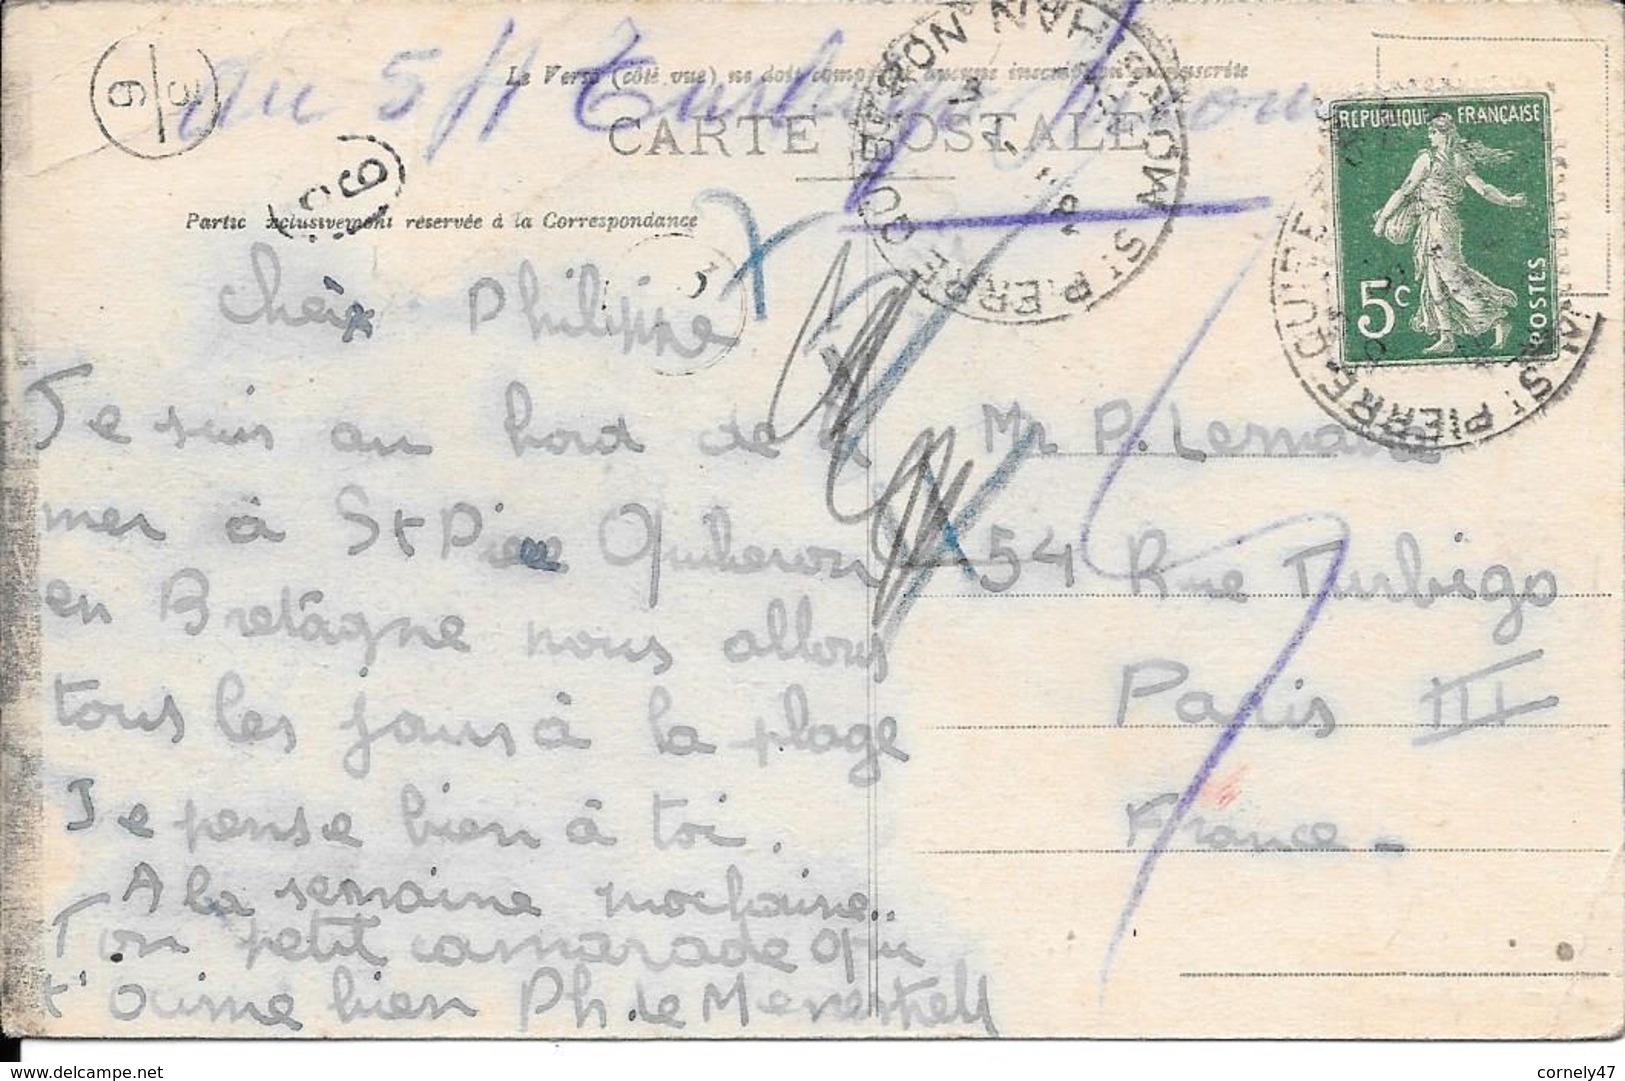 Le Verso (côté vue) ne doit comporter aucune inscription manuscrite
au 5/1 Turbigo
CARTE POSTALE
Partie exclusivement réservée à la Correspondance
RÉPUBLIQUE FRANÇAISE
5c
POSTES
ST PIERRE QUIBERON MORBIHAN
ST PIERRE-QUIBERON
9
3
cheix Philippe
Je suis au bord de la
mer à St Pierre Quiberon
en Bretagne nous allons
tous les jours à la plage
Je pense bien à toi.
A la semaine prochaine..
Ton petit camarade qui
t'aime bien Ph. de Menestrell
Mr P. Lemaire
54 Rue Turbigo
Paris III
France.
cornely47